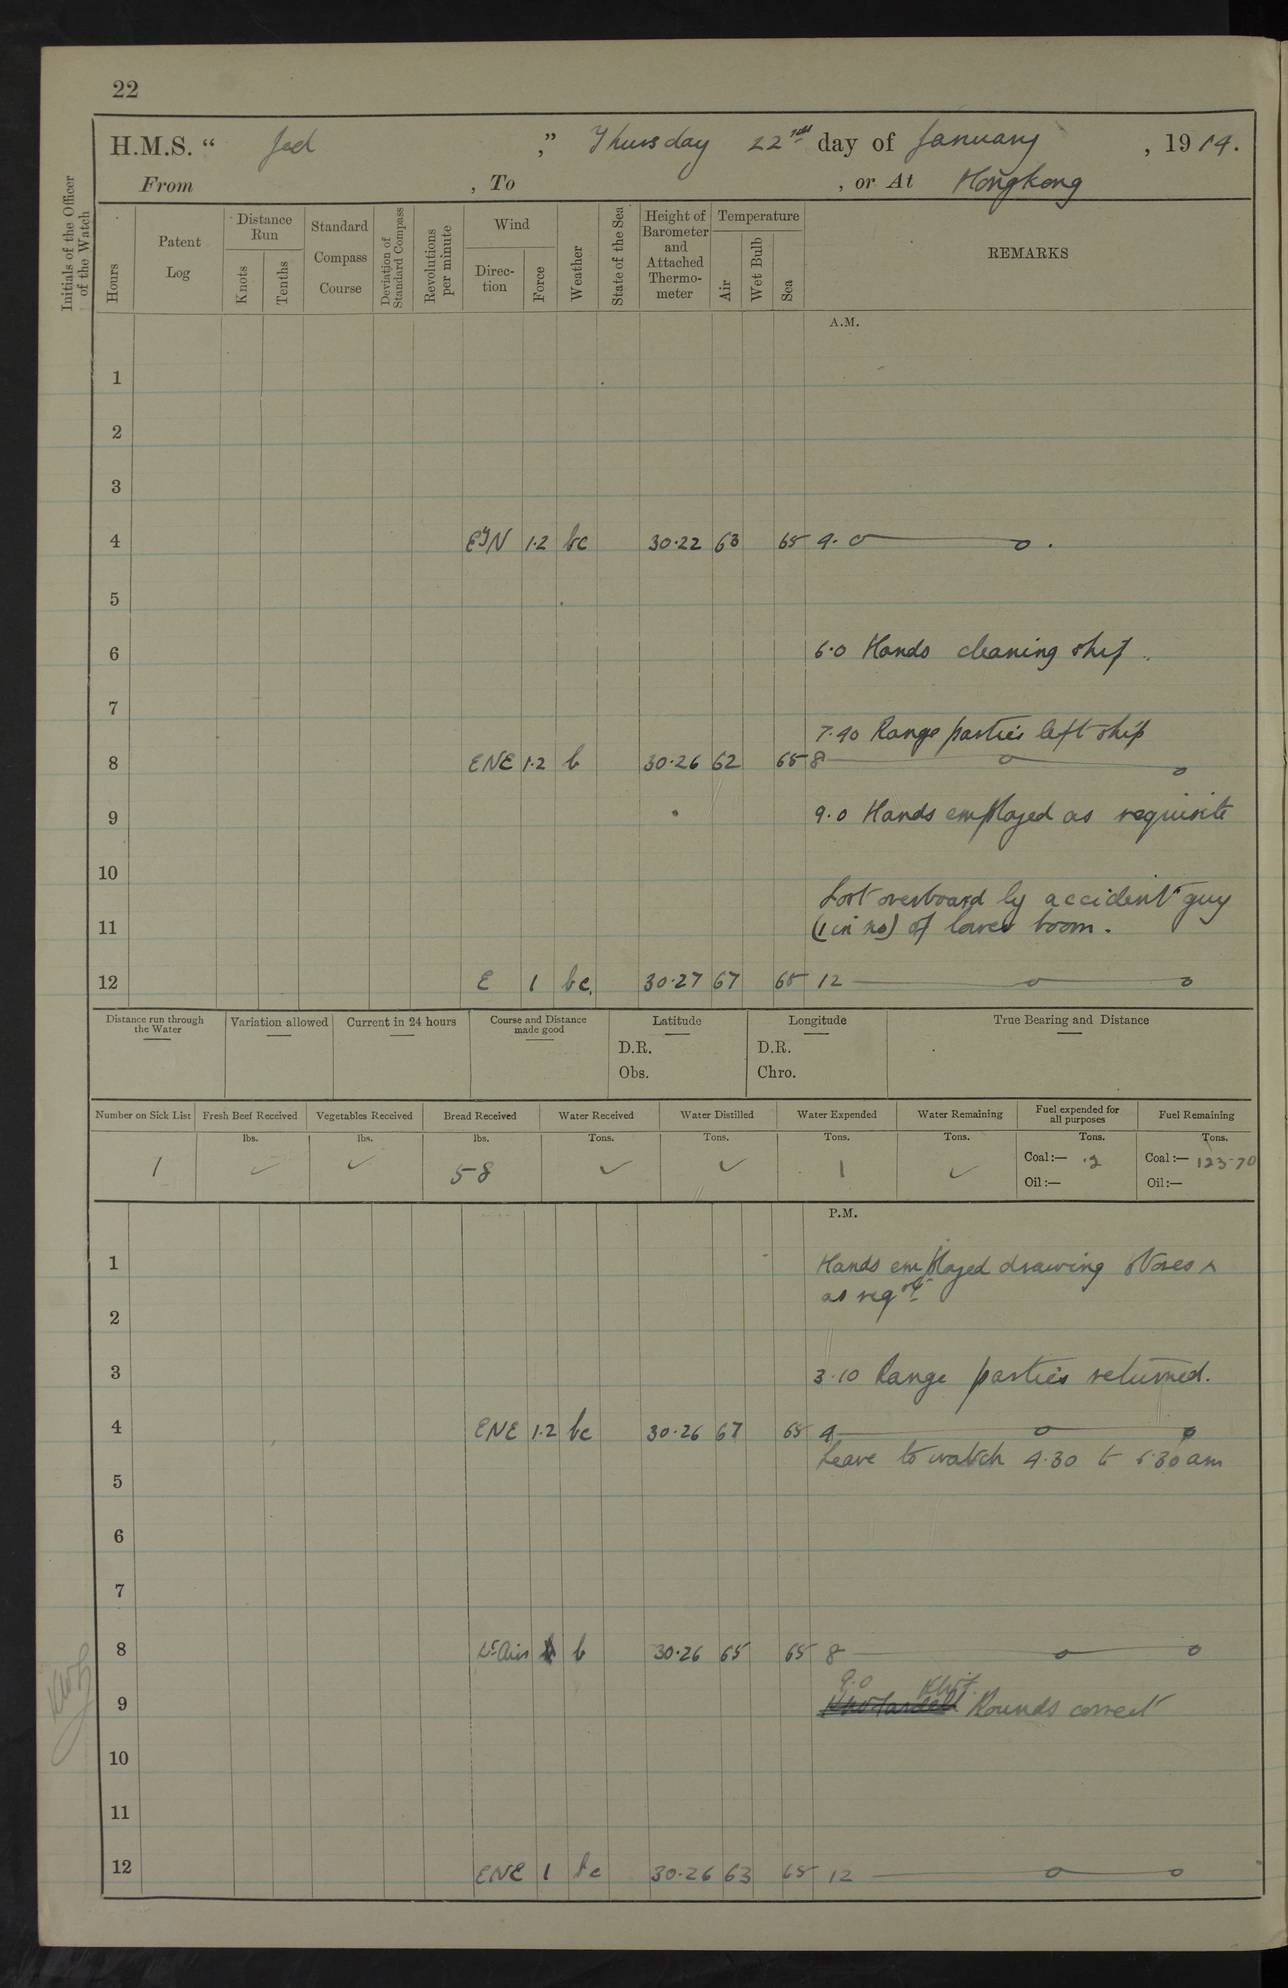 22
H.M.S. “ Jed ,” Thursday 22nd day of January , 1914.
From , To , or At Hongkong
Initials of the Officer of the Watch
Hours
Patent Log
Distance Run
Knots
Tenths
Standard Compass Course
Deviation of Standard Compass
Revolutions per minute
Wind
Direc-tion
Force
Weather
State of the Sea
Height of Barometer and Attached Thermo-meter
Temperature
Air
Wet Bulb
Sea
REMARKS
A.M.
1
2
3
4 EyN 1.2 bc 30.22 63 65 4.
5
6 6.0 Hands cleaning ship.
7
7.40 Range parties left ship
8 ENE 1.2 b 30.26 62 65 8
9 9.0 Hands employed as requisite
10
Lost overboard by accident guy
11 (1 in no) of lower boom.
12 E 1 bc. 30.27 67 65 12
Distance run through the Water
Variation allowed
Current in 24 hours
Course and Distance made good
Latitude
D.R.
Obs.
Longitude
D.R.
Chro.
True Bearing and Distance
Number on Sick List
Fresh Beef Received
Vegetables Received
Bread Received
Water Received
Water Distilled
Water Expended
Water Remaining
Fuel expended for all purposes
Fuel Remaining
lbs. lbs. lbs. Tons. Tons. Tons. Tons. Tons. Tons.
1 ✓ ✓ 58 ✓ ✓ 1 ✓ Coal:— .2 Coal:— 123.70
Oil:— Oil:—
P.M.
1 Hands employed drawing stores &
as reqste
2
3 3.10 Range parties returned.
4 ENE 1.2 bc 30.26 67 65 4
Leave to watch 4.30 to 6.30 am
5
6
7
8 Lt Airs b 30.26 65 65 8
9.0
9 Rounds correct
10
11
12 ENE 1 bc 30.26 63 65 12